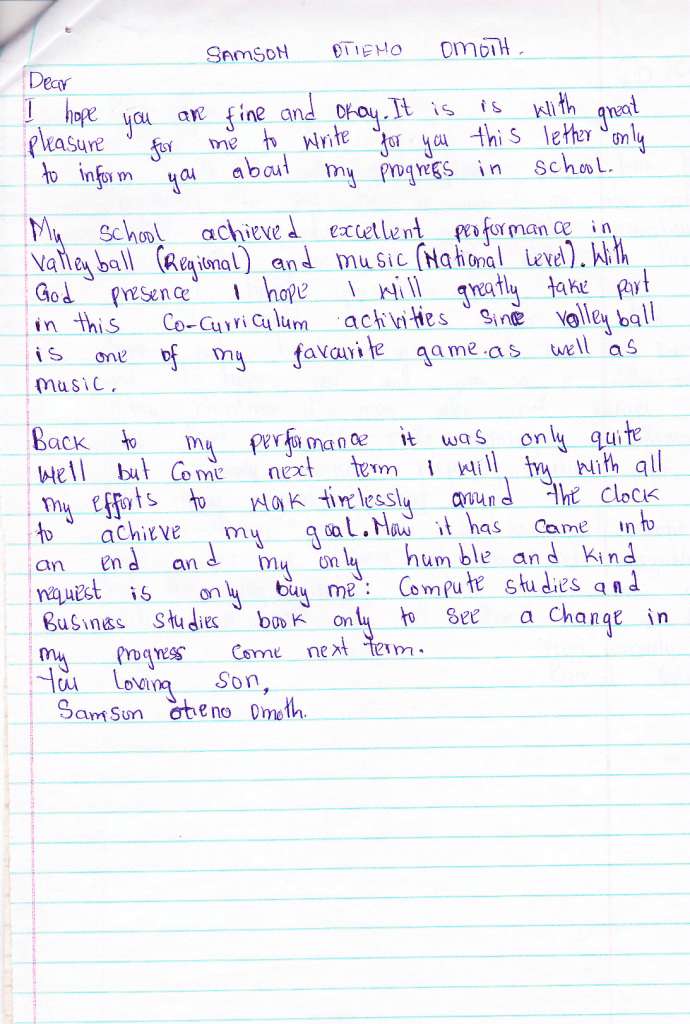 SAMSON OTIENO OMOTH.
Dear
I hope you are fine and okay. It is is with great
pleasure for me to write for you this letter only
to inform you about my progress in school.
My school achieved excellent performance in
Valleyball (Regional) and music (National Level). With
God presence I hope I will greatly take part
in this Co-Curriculum activities since volleyball
is one of my favourite game.as well as
music.
Back to my performance it was only quite
well but Come next term I will try with all
my efforts to work tirelessly around the clock
to achieve my goal. Now it has came into
an end and my only humble and kind
request is only buy me: Compute studies and
Business studies book only to see a Change in
my progress come next term.
You loving son,
Samson otieno Omoth.